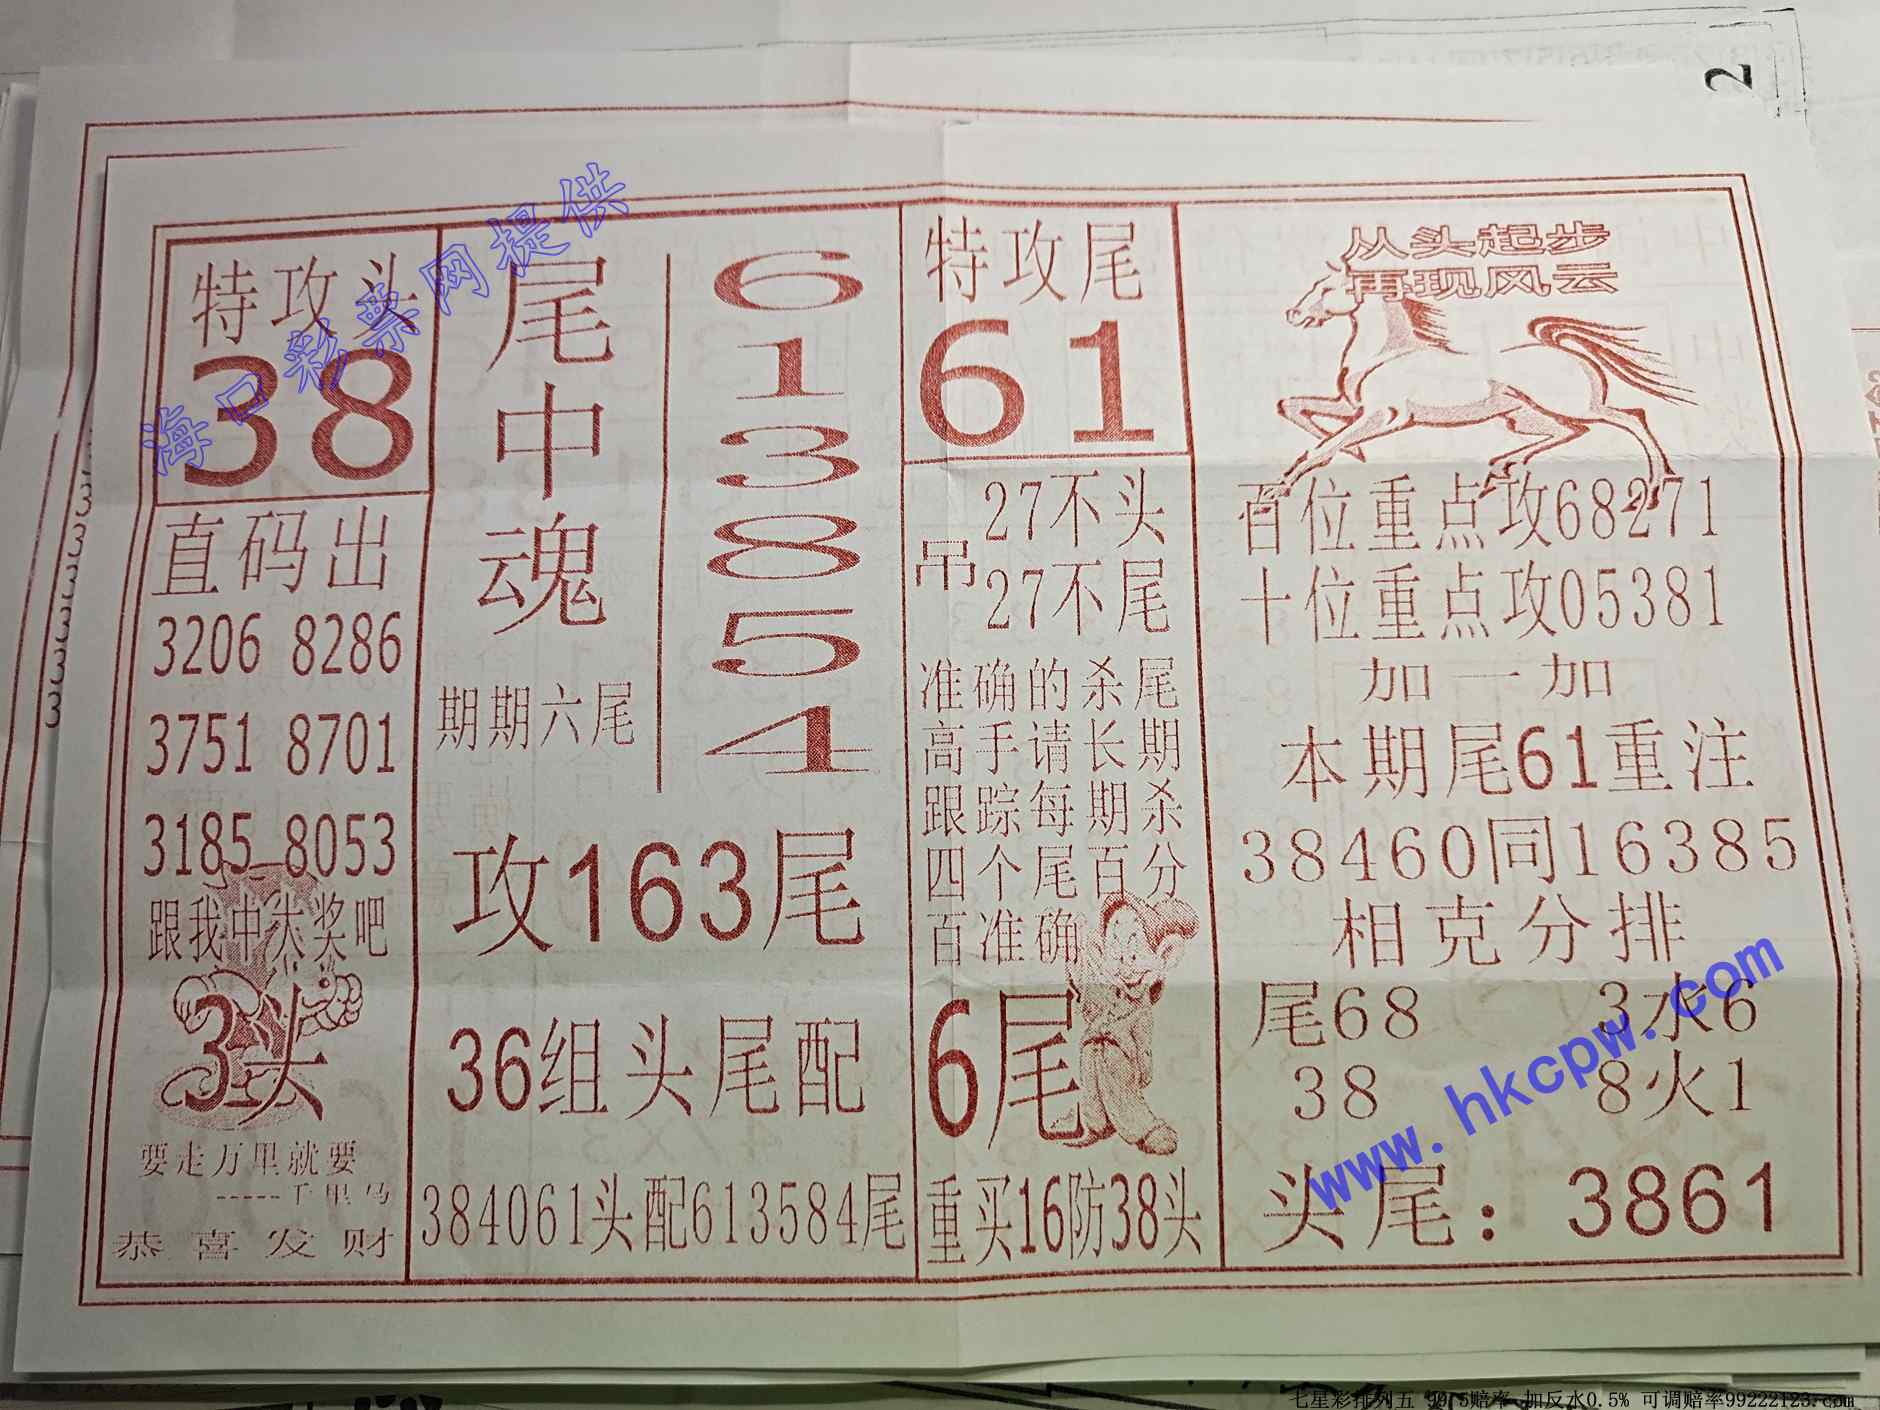 2
特攻头
38
直码出
3206 8286
3751 8701
3185 8053
跟我中大奖吧
3头
要走万里就要
-----千里马
恭喜发财
尾中魂
期期六尾
6
1
3
8
5
4
攻163尾
36组头尾配
384061头配613584尾
特攻尾
61
吊
27不头
27不尾
准确的杀尾
高手请长期
跟踪每期杀
四个尾百分
百准确
6尾
重买16防38头
从头起步
再现风云
百位重点攻68271
十位重点攻05381
加一加
本期尾61重注
38460同16385
相克分排
尾68 3水6
38 8火1
头尾：3861
海口彩票网提供
www.hkcpw.com
七星彩排列五 99.5赔率 加反水0.5% 可调赔率99222123.com